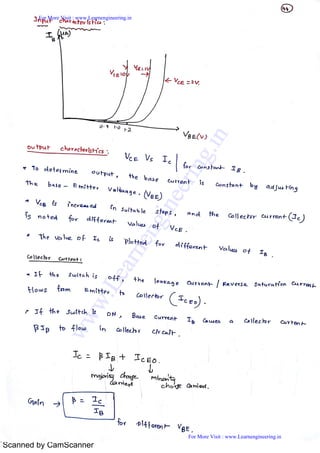 For More Visit : www.Learnengineering.in
44
Input characteristics :
VCE = 2V.
0.4 1.0 1.2
VBE(V)
output characteristics : VCE Vs Ic | for constant IB.
* To determine output, the base current is constant by adjusting
The base - Emitter Voltage. (VBE)
* VCE is increased in suitable steps, and the collector current (Ic)
is noted for different values of VCE.
* The value of Ic is plotted for different values of IB.
Collector Current :
* If the switch is off, the leakage current / Reverse saturation current
flows from Emitter to collector (ICEO).
* If the switch is ON, Base current IB causes a collector current
βIB to flow in collector circuit.
Ic = βIB + ICEO.
majority charge carriers minority charge carriers.
Gain → β = Ic / IB for different VBE.
www.Learnengineering.in
For More Visit : www.Learnengineering.in
Scanned by CamScanner